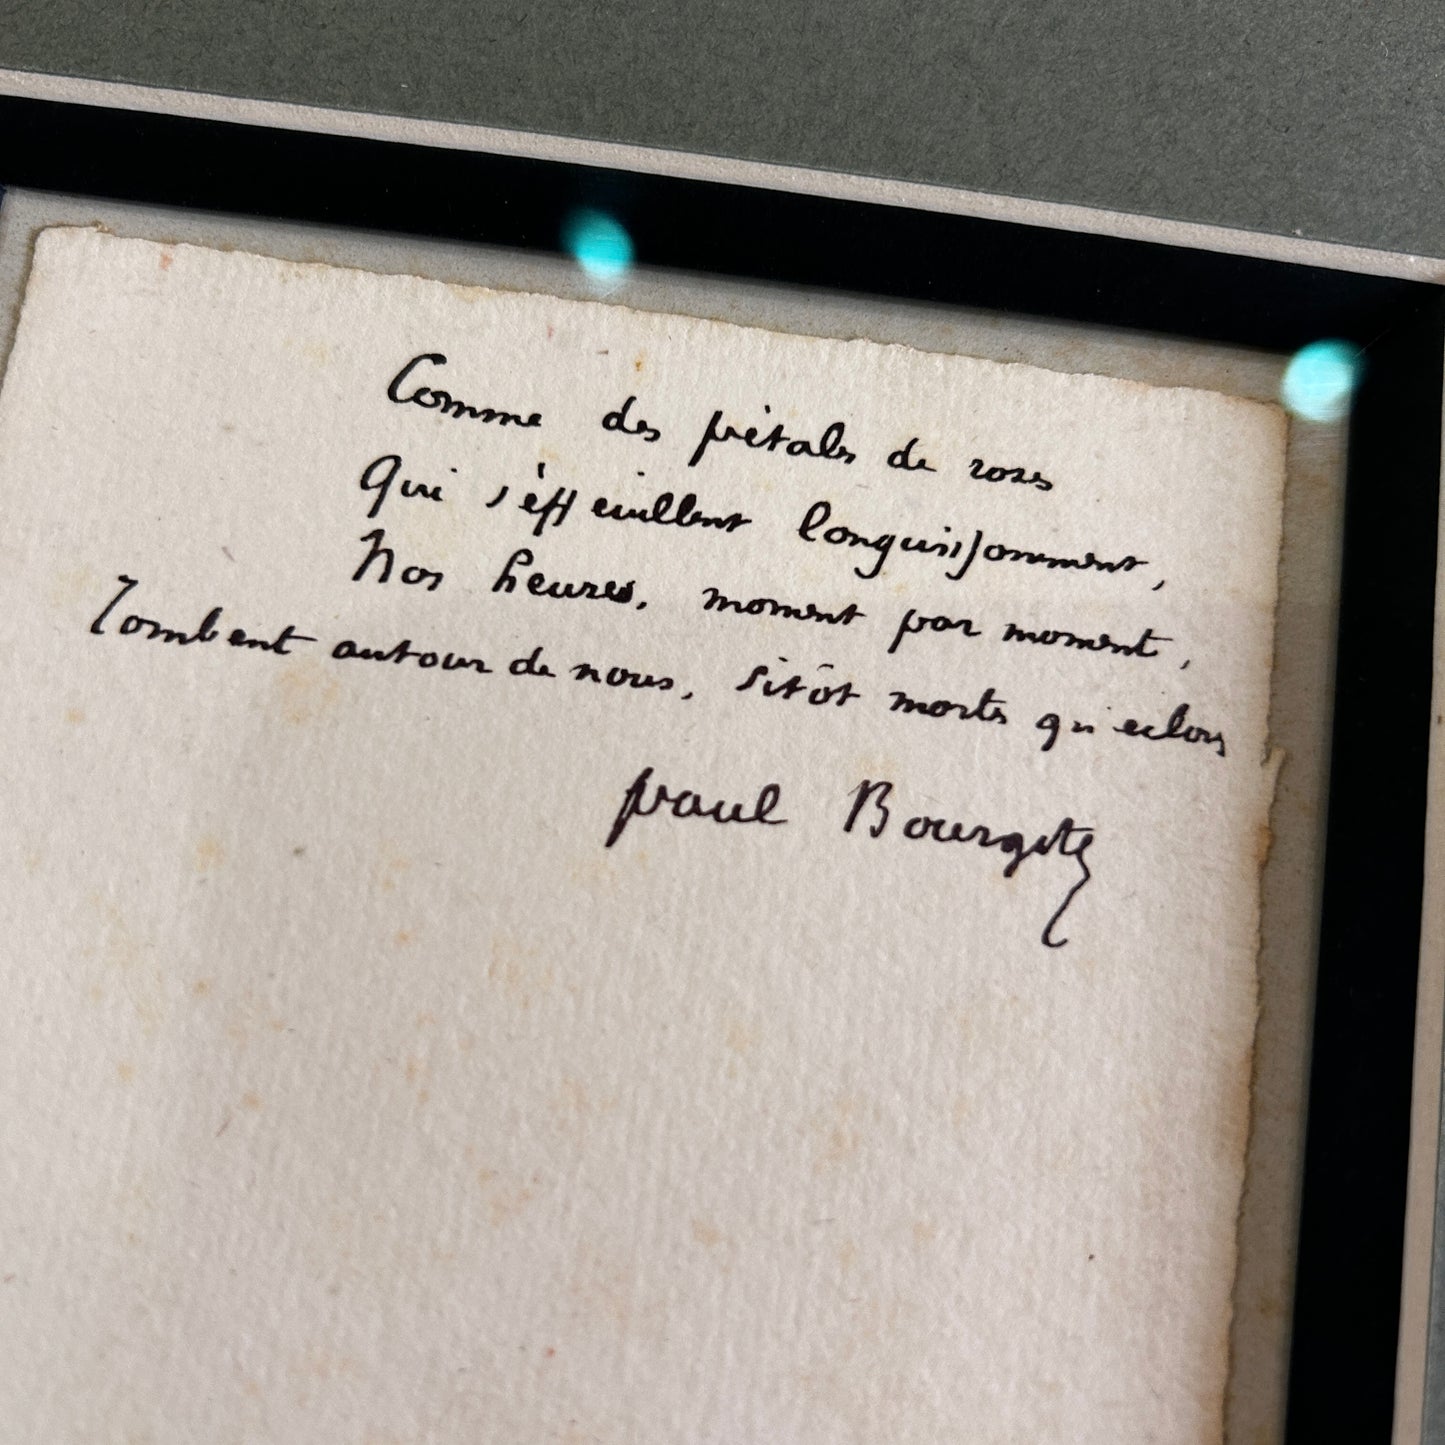 Comme des pétales de roses
Qui s'effeuillent languissamment,
Nos heures, moment par moment,
Tombent autour de nous, sitôt mortes qu'écloses
Paul Bourget